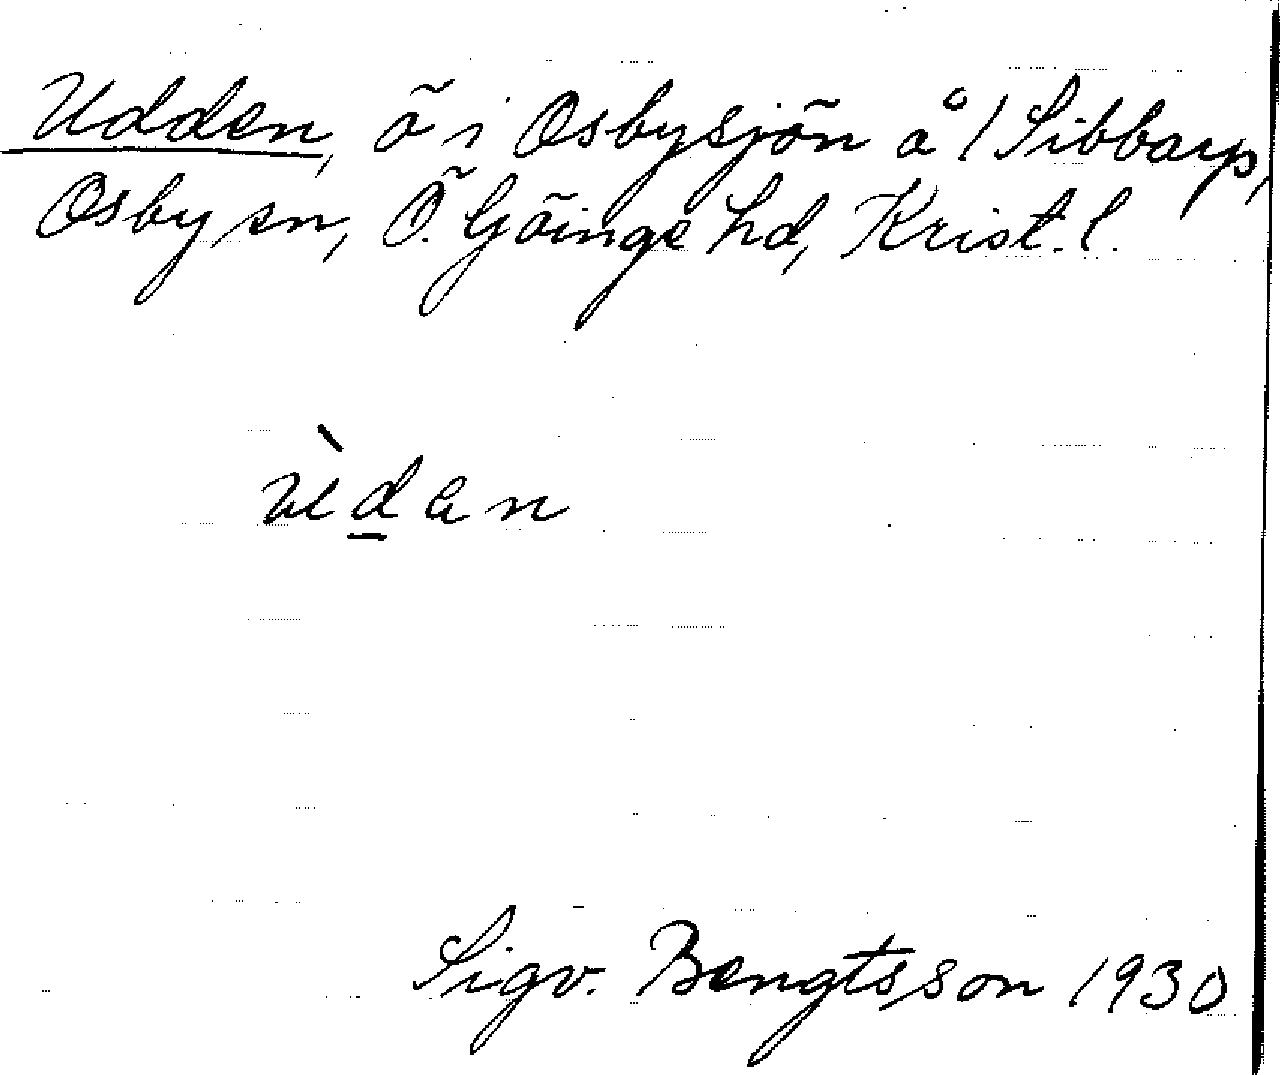 Udden, ö i Osbysjön å 1 Sibbarp,
Osby sn, Ö. Göinge hd, Krist. l.
ùdan
Sigv. Bengtsson 1930